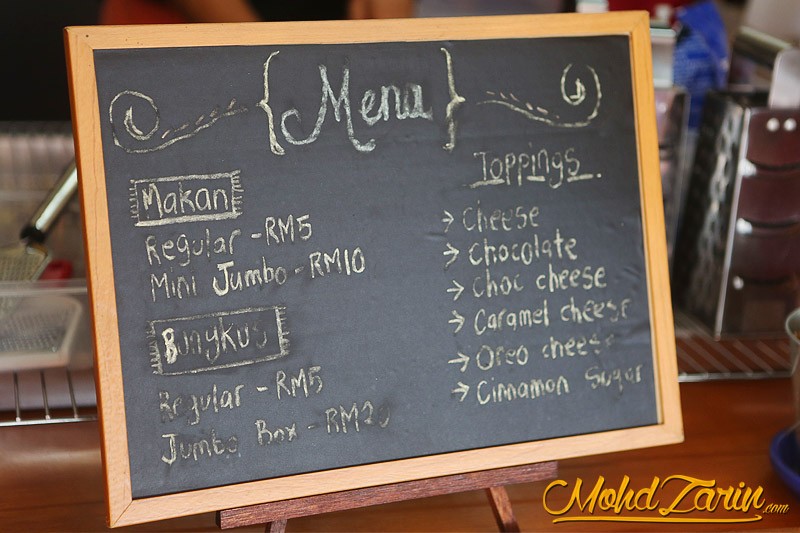 Menu
Makan
Regular - RM5
Mini Jumbo - RM10
Bungkus
Regular - RM5
Jumbo Box - RM20
Toppings
→ Cheese
→ Chocolate
→ Choc cheese
→ Caramel cheese
→ Oreo cheese
→ Cinnamon Sugar
MohdZarin.com